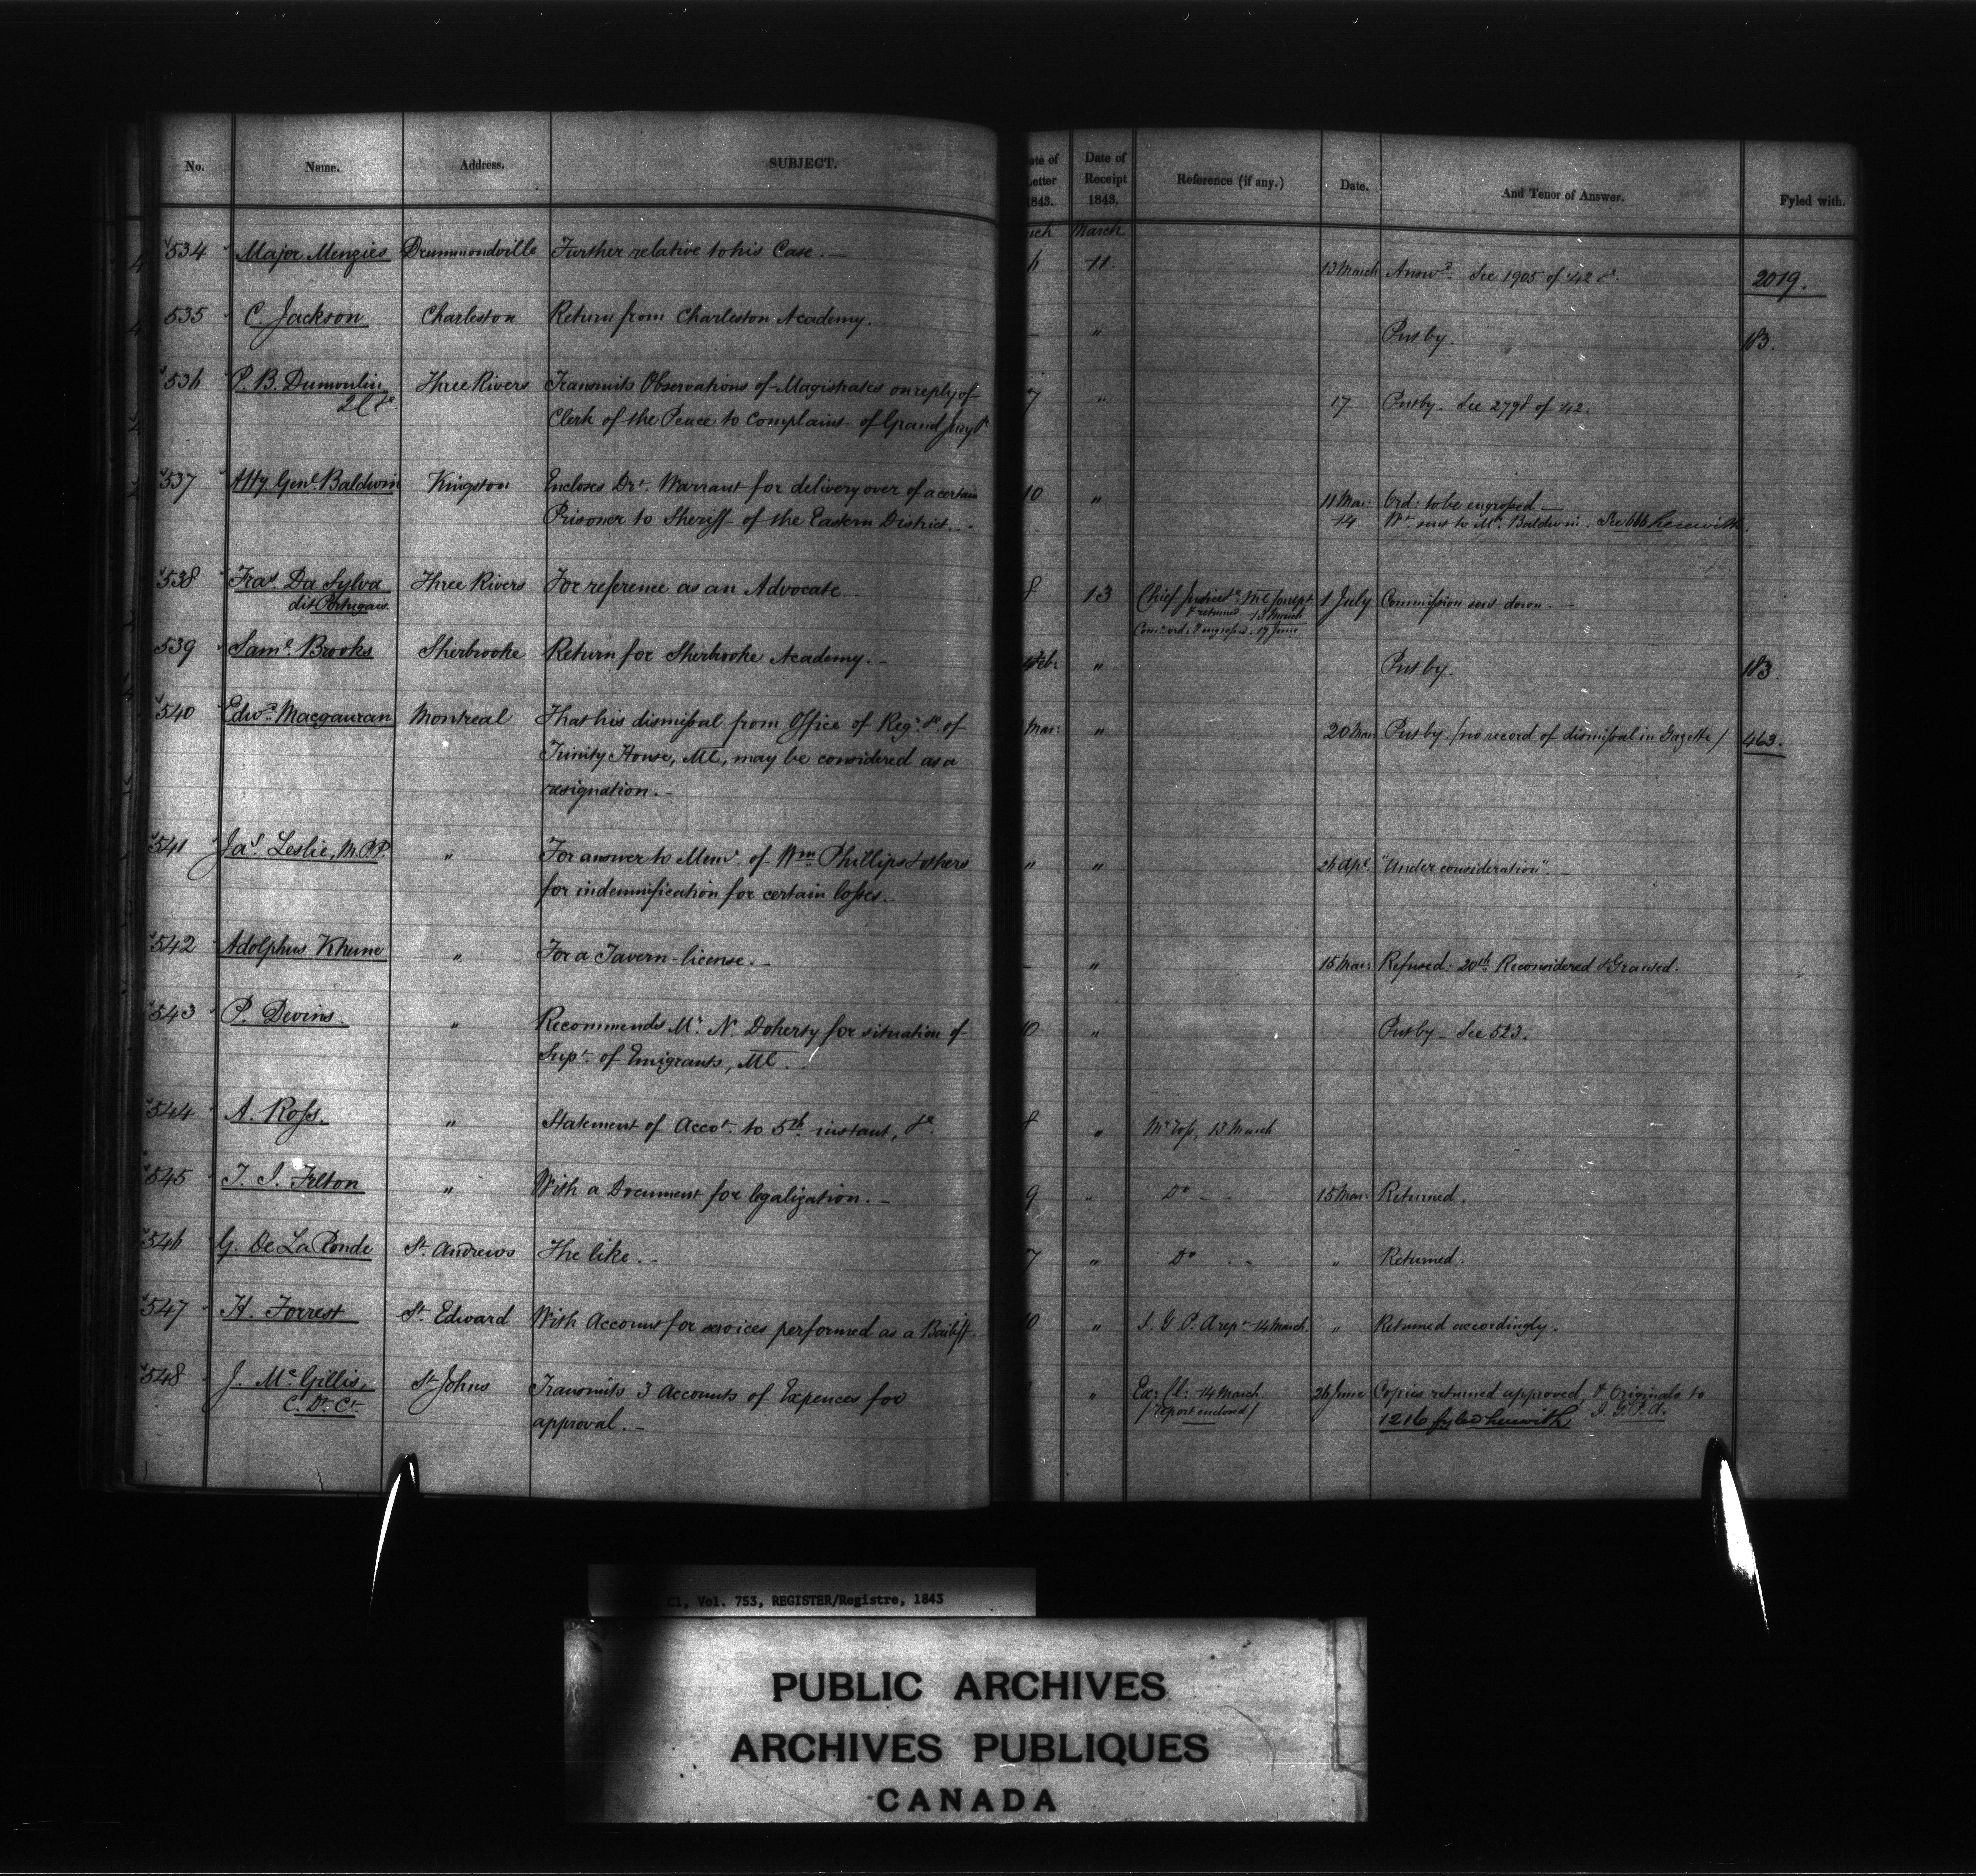 No. Name. Address. SUBJECT. ate of Letter 1843. Date of Receipt 1843. Reference (if any.) Date. And Tenor of Answer. Fyled with.
rch March
534 Major Menzies Drummondville Further relative to his Case. — 11. 13 March Answd. See 1905 of 42 &c. 2019.
535 C. Jackson Charleston Return from Charleston Academy. - " Put by. 183.
536 P. B. Dumoulin Three Rivers Transmits Observations of Magistrates on reply of 7 " 17 Put by. See 2798 of 42.
Clerk of the Peace to Complaint of Grand Jury &c
537 Atty. Genl. Baldwin Kingston Encloses Dft. Warrant for delivery over of a certain 10 " 11 Mar: Ord: to be engrossed —
Prisoner to Sheriff of the Eastern District. - 14 Wt. sent to Mr. Baldwin. See 666 herewith.
538 Fras. Da Sylva Three Rivers For reference as an Advocate 8 13 Chief Justice 1 July Commission sent down. —
dit Portugais. & returned 13 March
Com: ord. & engrossed. 17 June
539 Saml. Brooks Sherbrooke Return for Sherbrooke Academy. - Feb: " Put by. 183.
540 Edwd. Macgauran Montreal That his dismissal from Office of Regr. &c. of Mar: " 20 Mar: Put by. (no record of dismissal in Gazette) 463.
Trinity House, Ml, may be considered as a
resignation. -
541 Jas. Leslie, M.P.P. " For answer to Meml. of Wm Phillips & others " " 26 Apl. "Under consideration". —
for indemnification for certain losses.
542 Adolphus Khune " For a Tavern-license. - - " 15 Mar: Refused. 20th Reconsidered & Granted.
543 P. Devins " Recommends Mr. N. Doherty for situation of 10 " Put by - See 523.
Supt. of Emigrants, Ml.
544 A. Ross. " Statement of Accot. to 5th instant, &c. 8 " 13 March
545 T. I. Felton " With a Document for legalization. - 9 " Do - 15 Mar: Returned.
546 G. De La Ronde St. Andrews The like. - 7 " Do - - " Returned.
547 H. Forrest St. Edward With Account for services performed as a Bailiff. 10 " I. G. P. A rept. 14 March. " Returned accordingly.
548 J. McGillis, St. Johns Transmits 3 Accounts of Expences for " Ex: Cl: 14 March. 26 June Copies returned approved, & Originals to
C. Dt. Ct. approval. - (report enclosed) 1216 fyled herewith. I. G. P. A.
C1, Vol. 753, REGISTER/Registre, 1843
PUBLIC ARCHIVES
ARCHIVES PUBLIQUES
CANADA